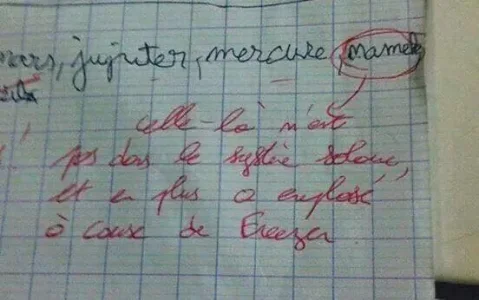 mars, jupiter, mercure, namek
celle-là n'est
pas dans le système solaire,
et en plus a explosé
à cause de Freezer